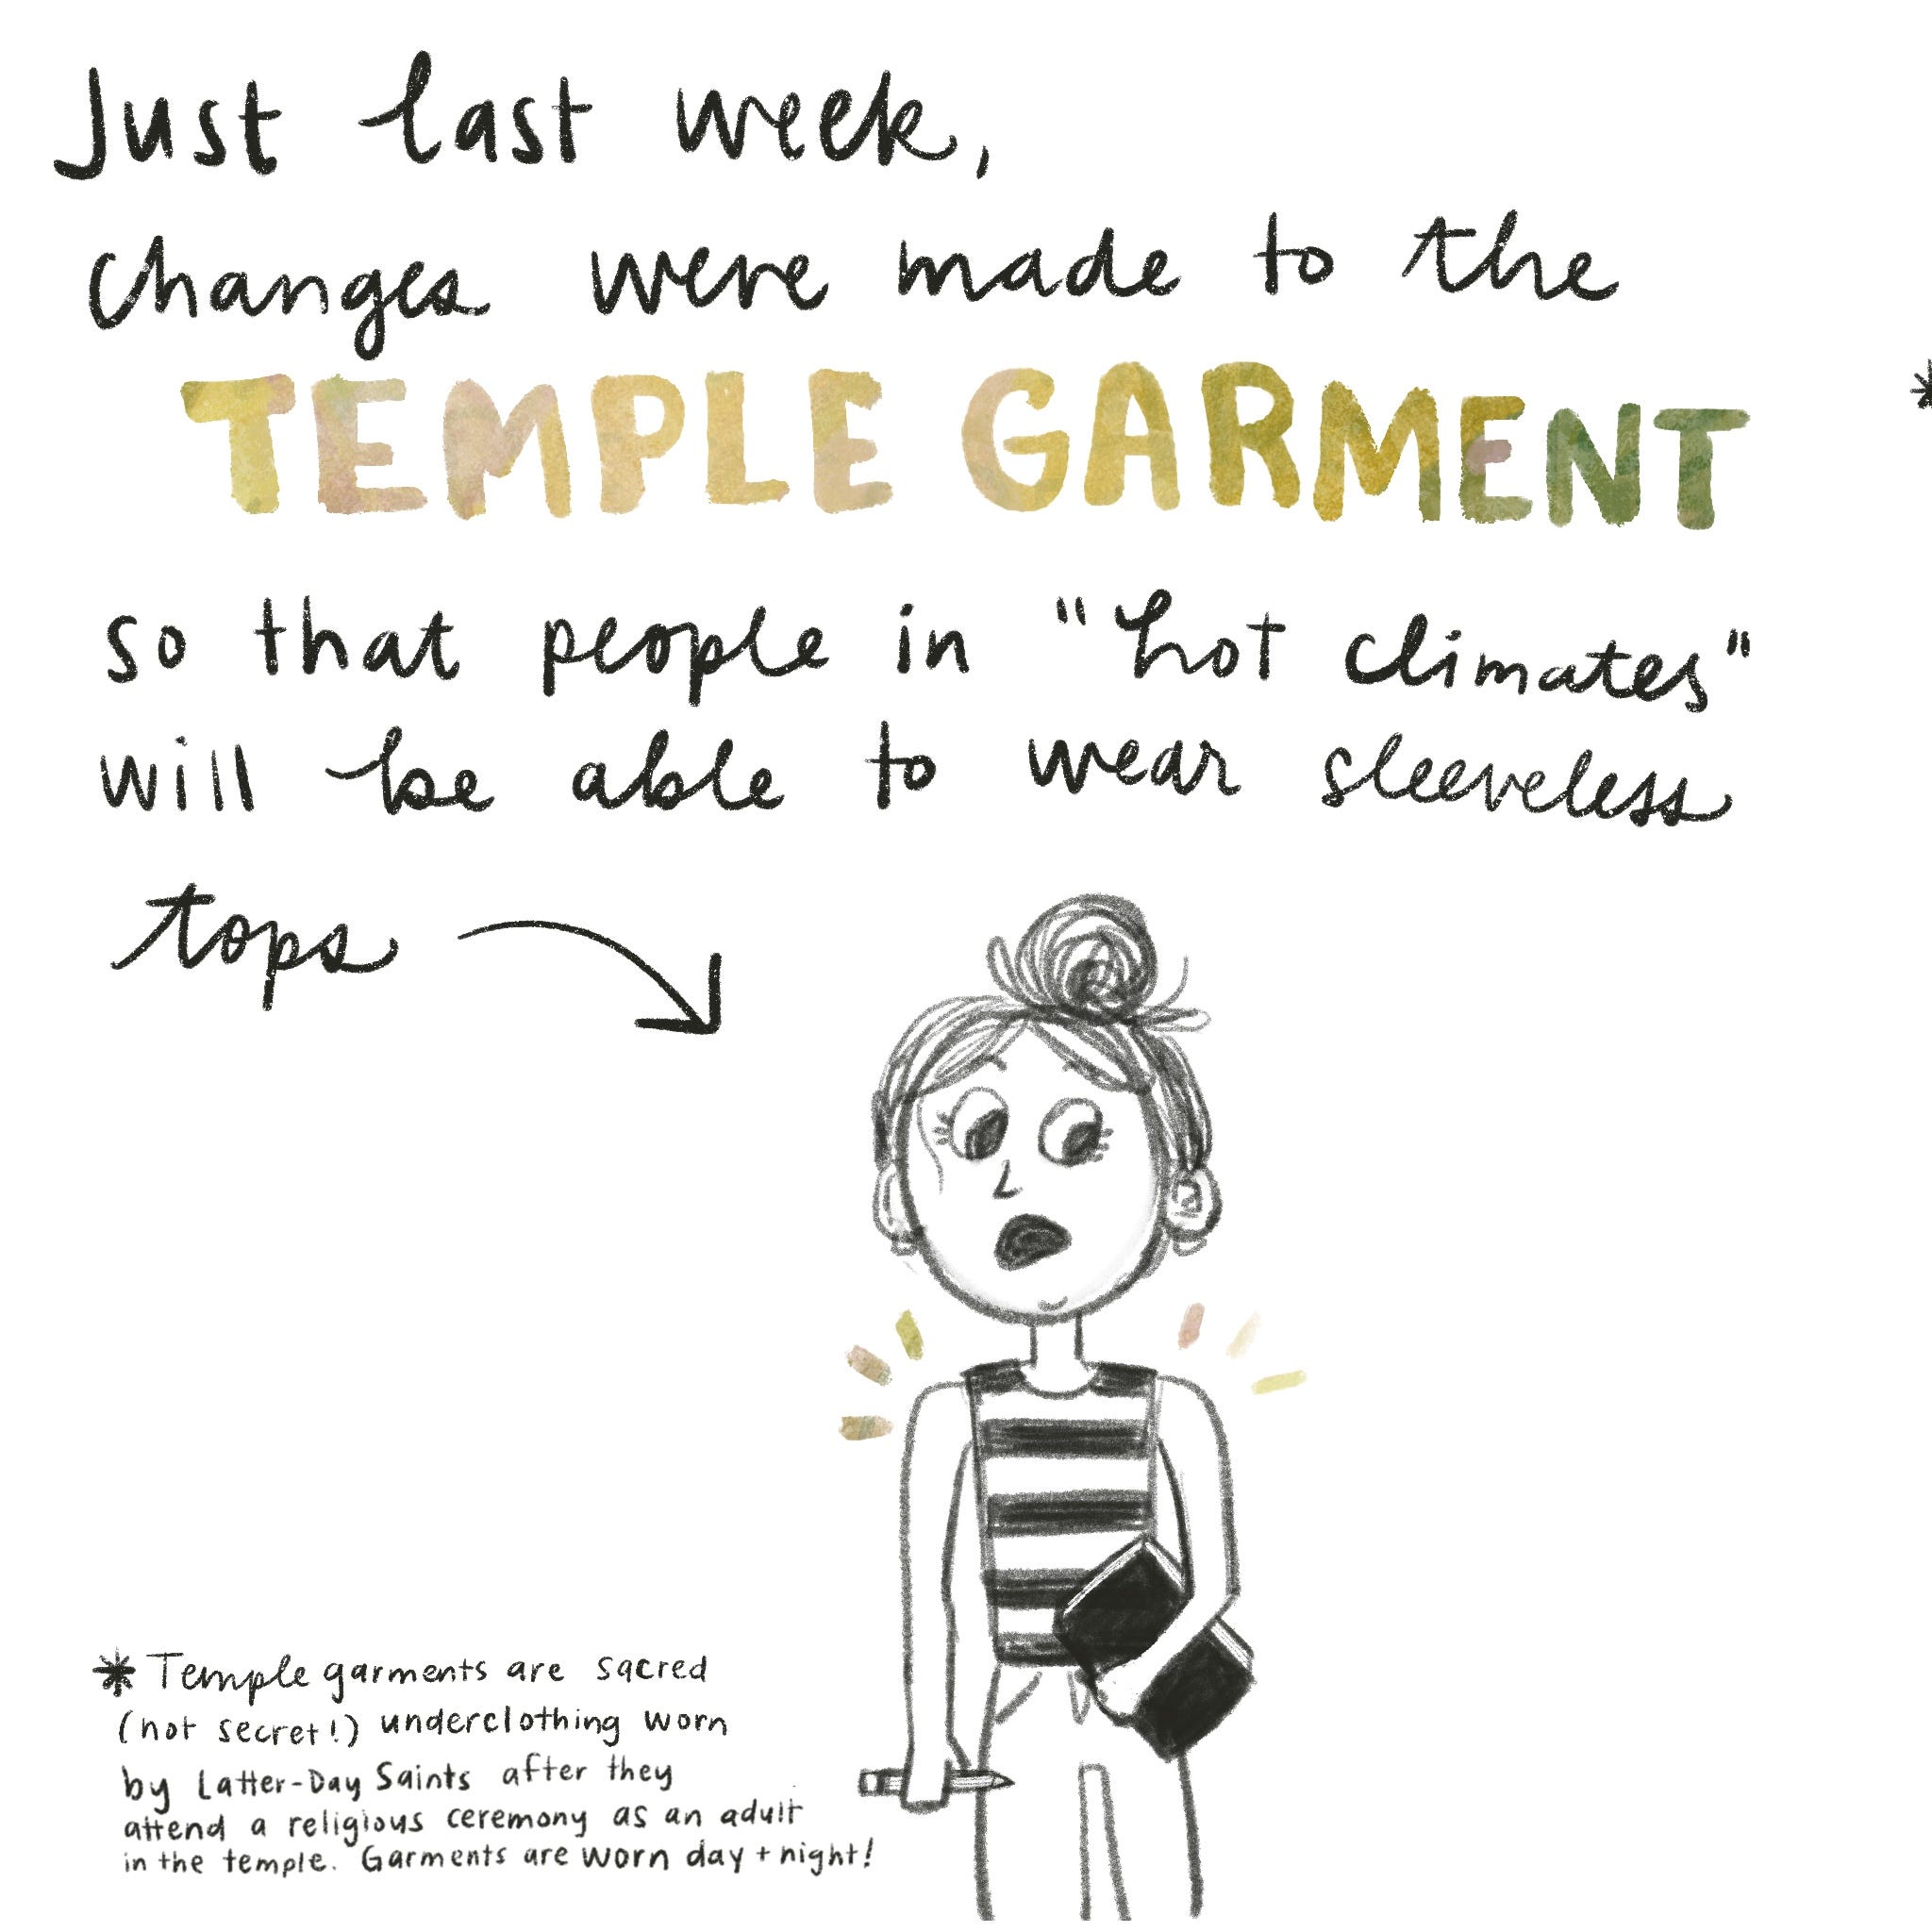 Just last week,
changes were made to the
TEMPLE GARMENT *
so that people in "hot climates"
will be able to wear sleeveless
tops
* Temple garments are sacred
(not secret!) underclothing worn
by Latter-Day Saints after they
attend a religious ceremony as an adult
in the temple. Garments are worn day + night!